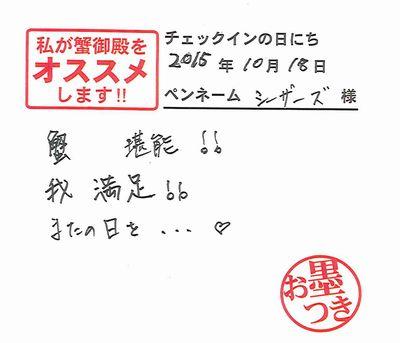 私が蟹御殿を
オススメ
します!!
チェックインの日にち
2015年10月18日
ペンネーム シーザーズ 様
蟹 堪能!!
我 満足!!
またの日を...♡
お墨つき